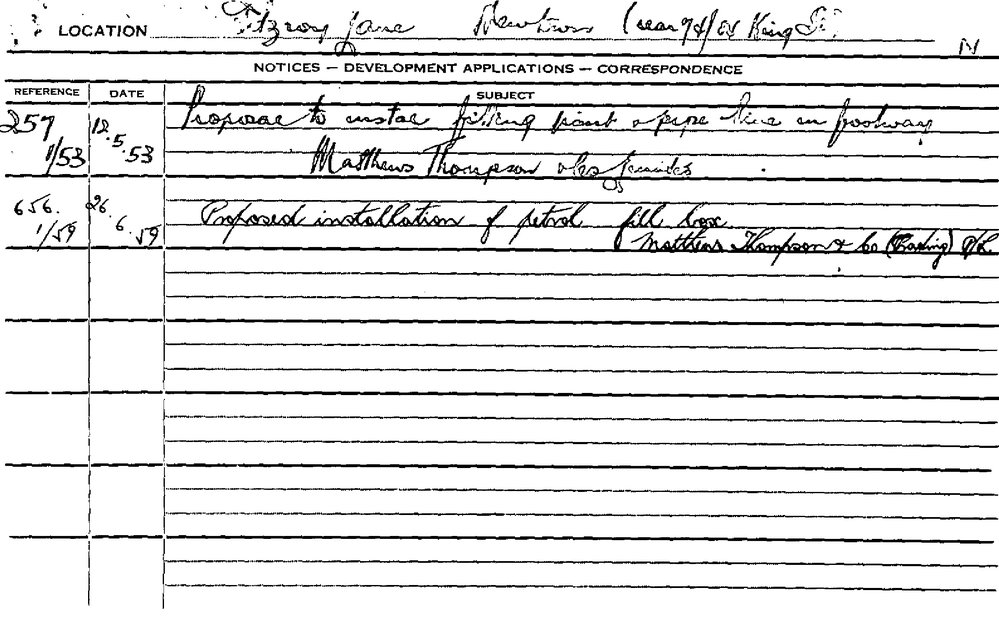 LOCATION Fitzroy Lane Newtown (rear 74/84 King St.
N
NOTICES — DEVELOPMENT APPLICATIONS — CORRESPONDENCE
REFERENCE DATE SUBJECT
257 1/53 12.5.53 Propose to instal filling point & pipe line in footway
Matthews Thompson
656. 1/59 26.6.59 Proposed installation of petrol fill box
Matthews Thompson & Co (Trading) P/L